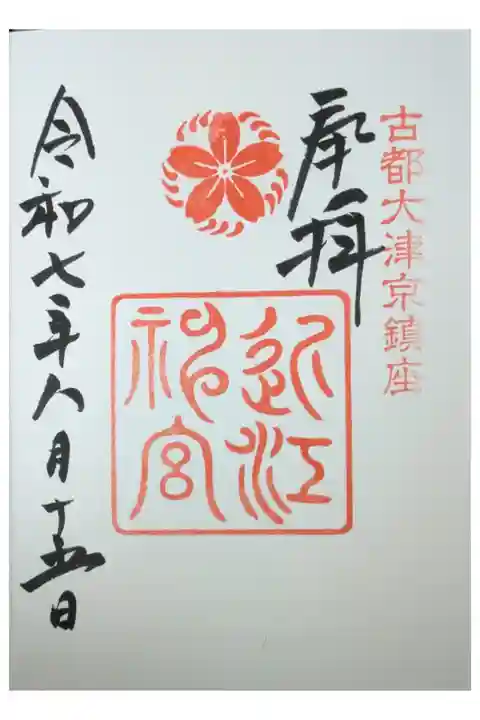 古都大津京鎮座
奉拝
近江
神宮
令和七年八月十五日